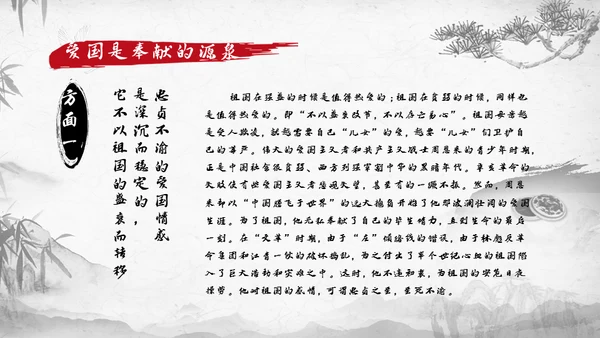 爱国是奉献的源泉
方面一
忠贞不渝的爱国情感
是深沉而稳定的，
它不以祖国的盛衰而转移
祖国在强盛的时候是值得热爱的；祖国在贫弱的时候，同样也
是值得热爱的。即“不以盛衰改节，不以存亡易心”。祖国母亲越
是受人欺凌，就越需要自己“儿女”的爱，越要“儿女”们卫护自
己的尊严。伟大的爱国主义者和共产主义战士周恩来的青少年时期，
正是中国社会很贫弱、西方列强宰割中华的黑暗年代。辛亥革命的
失败使有些爱国主义者悲观失望，甚至有的一蹶不振。然而，周恩
来却以“中国腾飞于世界”的远大抱负开始了他那波澜壮阔的爱国
生涯。为了祖国，他无私奉献了自己的毕生精力，直到生命的最后
一刻。在“文革”时期，由于“左”倾路线的错误，由于林彪反革
命集团和江青一伙的破坏捣乱，为之付出了半个世纪心血的祖国陷
入了巨大浩劫和灾难之中。这时，他不违初衷，为祖国的安危日夜
操劳。他对祖国的感情，可谓忠贞之至，至死不渝。